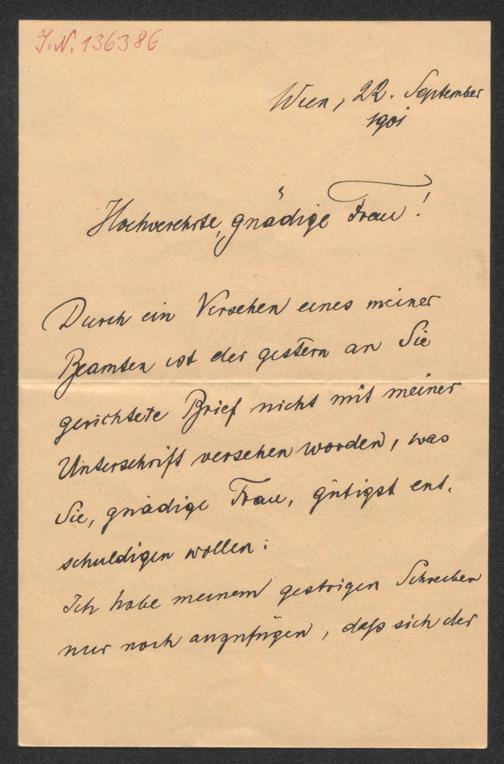 J.N. 136386
Wien, 22. September
1901
Hochverehrte, gnädige Frau!
Durch ein Versehen eines meiner
Beamten ist der gestern an Sie
gerichtete Brief nicht mit meiner
Unterschrift versehen worden, was
Sie, gnädige Frau, gütigst ent-
schuldigen wollen.
Ich habe meinem gestrigen Schreiben
nur noch anzufügen, daß sich der